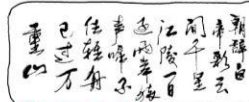 朝辞白
帝彩云
间千里
江陵一日
还两岸猿
声啼不
住轻舟
已过万
重山